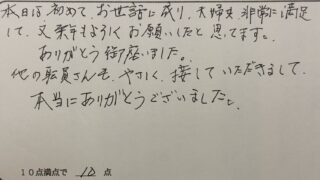 本日は、初めて、お世話に成り、夫婦共、非常に満足
して、又来年もよろしくお願いしたと思てます。
ありがとう御座いました。
他の職員さんも、やさしく、接していただきまして、
本当にありがとうございました。
10点満点で 10 点